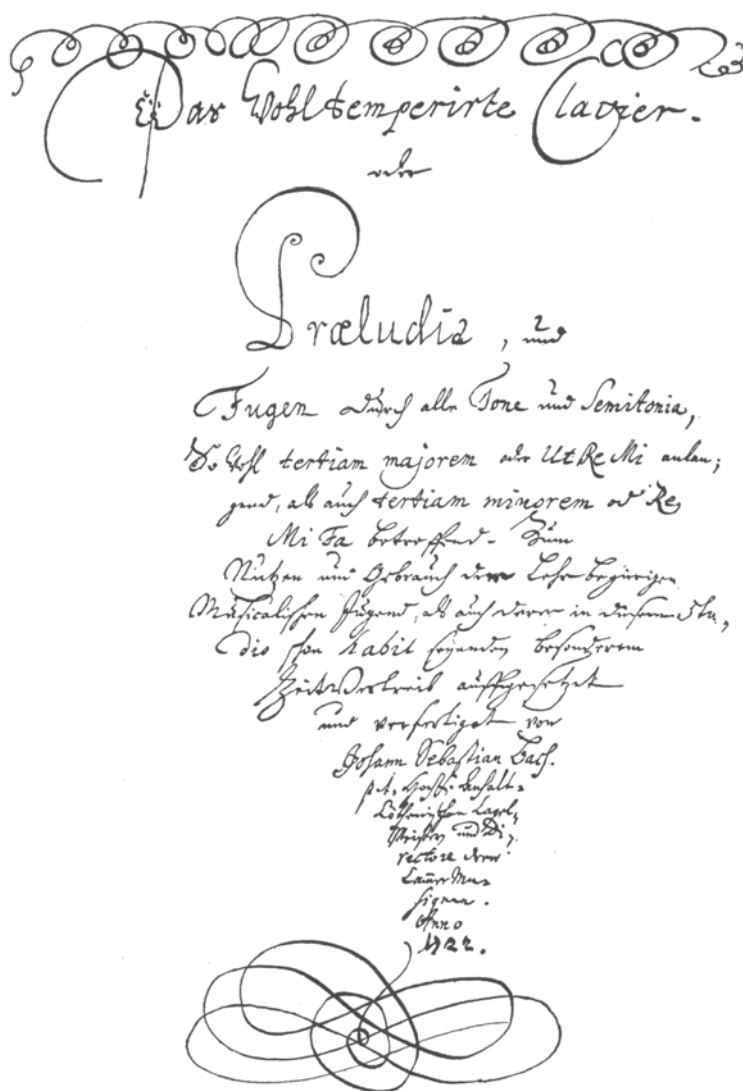 Das Wohltemperirte Clavier.
oder
Præludia, und
Fugen durch alle Tone und Semitonia,
So wohl tertiam majorem oder Ut Re Mi anlan,
gend, als auch tertiam minorem oder Re
Mi Fa betreffend. Zum
Nutzen und Gebrauch der Lehr-begierigen
Musicalischen Jugend, als auch derer in diesem stu,
dio schon habil seyenden besonderem
ZeitVertreib auffgesetzet
und verfertiget von
Johann Sebastian Bach.
p. t. HochF. Anhalt-
Cöthenischen Capel,
Meistern und Di,
rectore derer
CammerMu-
siquen.
Anno
1722.